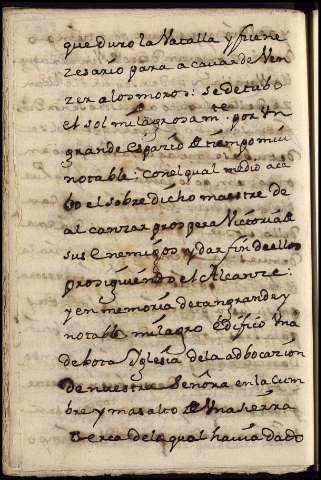 que duro la Vatalla y fue ne
zesario para acauar de Ven
zer a los moros: se detubo
el sol milagrosam.te por un
grande espazio de tiempo mui
notable: con el qual medio aca
bo el sobre dicho maestre de
alcanzar prospera Victoria de
sus Enemigos y dar fin de ellos
prosiguiendo el Alcanze:
y en memoria de tan grande y
notable milagro Edifico Una
debota Iglesia de la adbocazion
de nuestra Señora en la Cum
bre y mas alto de Una sierra
Zerca de la qual hauia dado